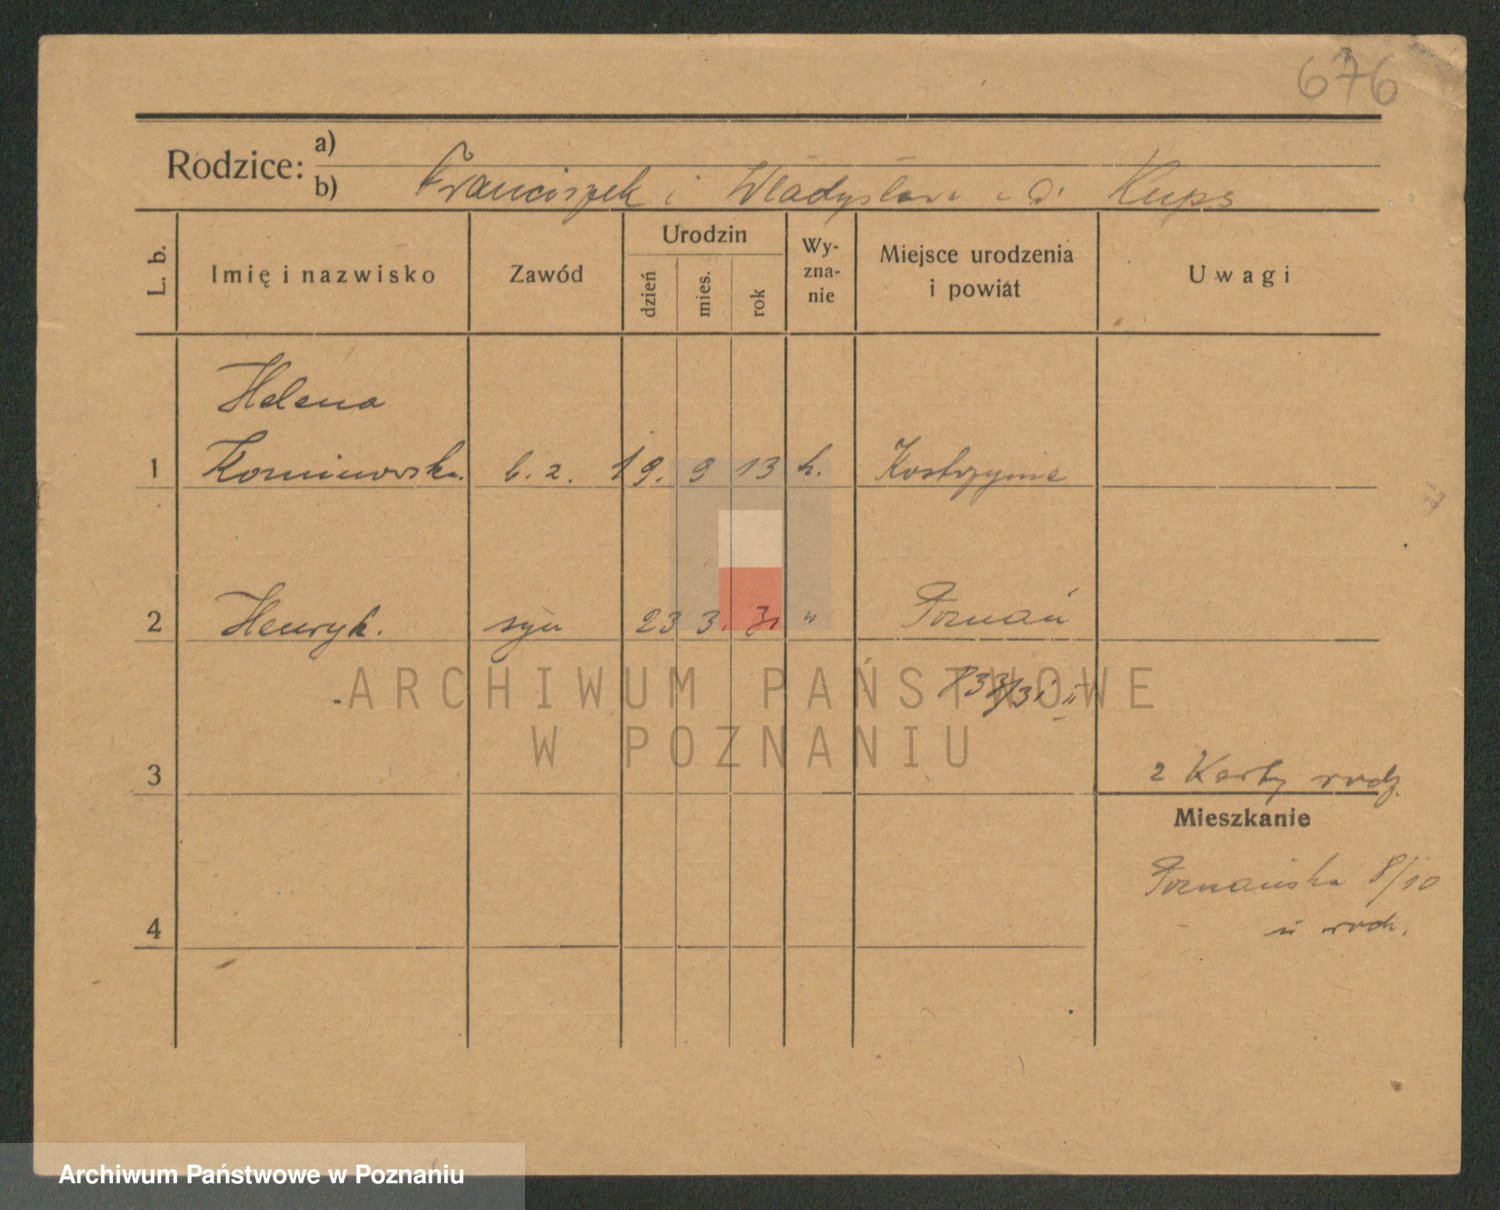 676
Rodzice: a)
b) Franciszek i Władysława d. Kups
L. b. Imię i nazwisko Zawód Urodzin dzień mies. rok Wy-zna-nie Miejsce urodzenia i powiat Uwagi
Helena
1 b. z. 19. 9 13 k. Kostrzynie
2 Henryk. syn 23 3. 31 " Poznań
ARCHIWUM PAŃSTWOWE
W POZNANIU
3 2 Karty rodz.
Mieszkanie
Poznańska 8/10
4 u rodz.
Archiwum Państwowe w Poznaniu